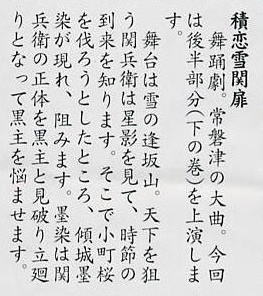 積恋雪関扉
　舞踊劇。常磐津の大曲。今回
は後半部分(下の巻)を上演しま
す。
　舞台は雪の逢坂山。天下を狙
う関兵衛は星影を見て、時節の
到来を知ります。そこで小町桜
を伐ろうとしたところ、傾城墨
染が現れ、阻みます。墨染は関
兵衛の正体を黒主と見破り立廻
りとなって黒主を悩ませます。